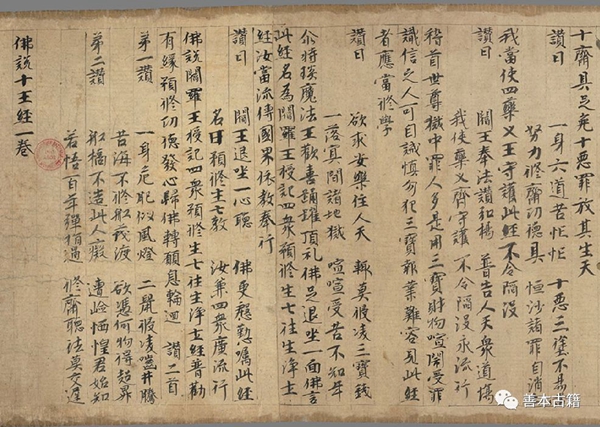 十齋具足免十惡罪放其生天
讚曰　一身六道苦忙忙　十惡三塗不易
努力修齋功德具　恒沙諸罪自消
我當使四藥叉王守護此經不令陷沒
讚曰　閻王奉法讚和揚　普告人天衆道場
我使藥叉齊守護　不令陷沒永流行
稽首世尊獄中罪人多是用三寶財物喧閙受罪
識信之人可自誡慎勿犯三寶報業難容見此經
者應當修學
讚曰　欲求安樂住人天　輒莫彼凌三寶錢
一落冥間諸地獄　喧喧受苦不知年
尒時琰魔法王歡喜踊躍頂礼佛足退坐一面佛言
此經名爲閻羅王授記四衆預修生七往生淨土
經汝當流傳國界依教奉行
讚曰　閻王退坐一心聽　佛更慇懃囑此經
名曰預修生七教　汝兼四衆廣流行
佛說閻羅王授記四衆預修生七往生淨土經普勸
有緣預修功德發心歸佛轉願息輪迴　讚二首
第一讚　一身危脆似風燈　二鼠彼凌嚙井騰
苦海不修舩筏渡　欲憑何物得超昇
第二讚　舩橋不造此人癡　遭險恓惶君始知
若悟百年彈指過　修齋聽法莫交遲
佛說十王經一卷
善本古籍